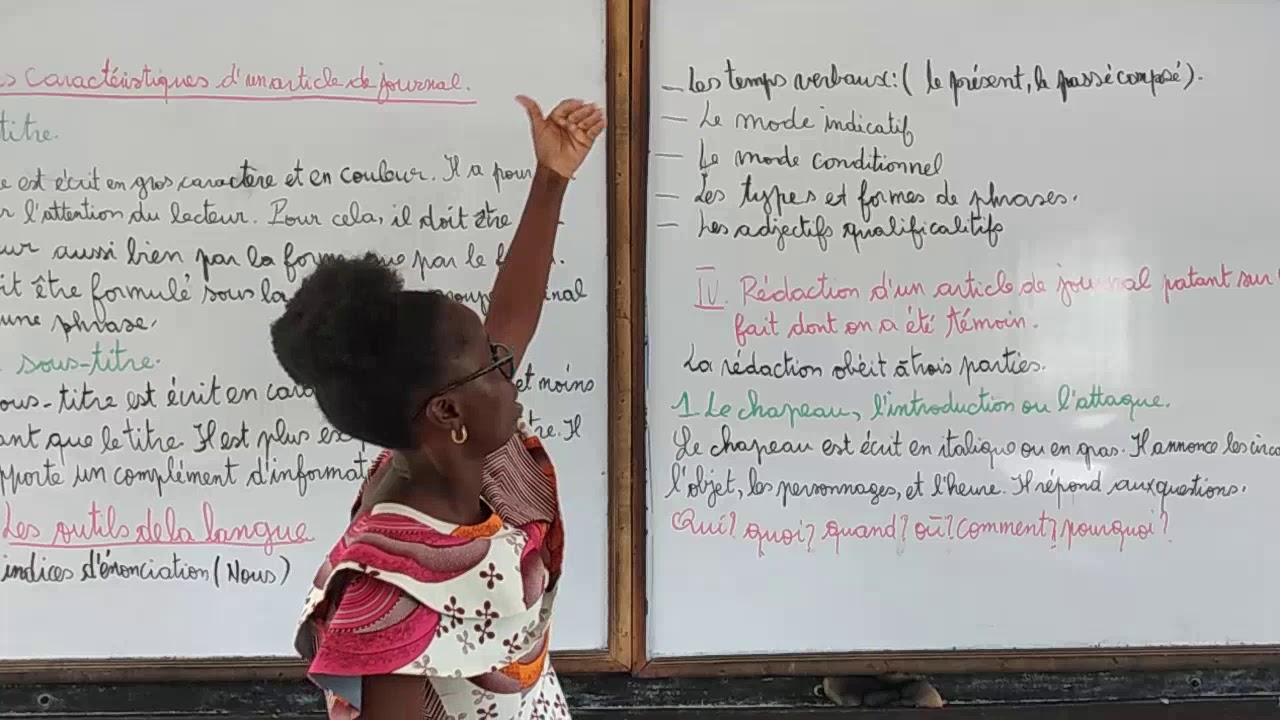 s caractéristiques d'un article de journal.
titre.
e est écrit en gros caractère et en couleur. Il a pour
r l'attention du lecteur. Pour cela, il doit être
ur aussi bien par la forme que par le
it être formulé sous la
une phrase.
sous-titre.
ous-titre est écrit en et moins
ant que le titre. Il est plus Il
pporte un complément d'informat
Les outils de la langue
indices d'énonciation (Nous)
- Les temps verbaux: ( le présent, le passé composé).
- Le mode indicatif
- Le mode conditionnel
- Les types et formes de phrases.
- Les adjectifs qualificalitifs
IV. Rédaction d'un article de journal patant sur
fait dont on a été témoin.
La rédaction obéit à trois parties.
1 Le chapeau, l'introduction ou l'attaque.
Le chapeau est écrit en italique ou en gras. Il annonce les circo
l'objet, les personnages, et l'heure. Il répond aux questions.
Qui? quoi? quand? où? comment? pourquoi?